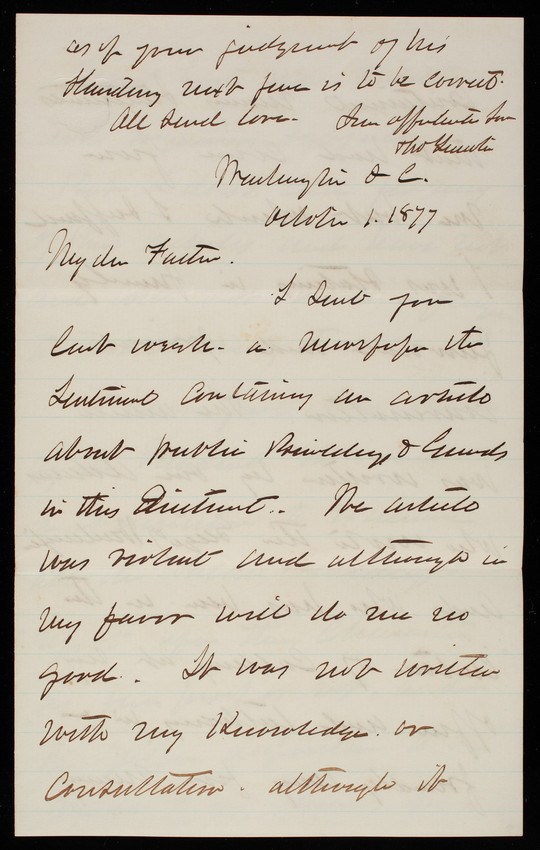 as of your judgment of his
standing next June is to be correct.
All send love. Your affectionate Son
Tho L Casey
Washington D C.
October 1. 1877
My dear Father.
I sent you
last week a newspaper the
Sentinel containing an article
about public Buildings & Grounds
in this District. The article
was violent and although in
my favor will do me no
good. It was not written
with my knowledge or
consultation. although it